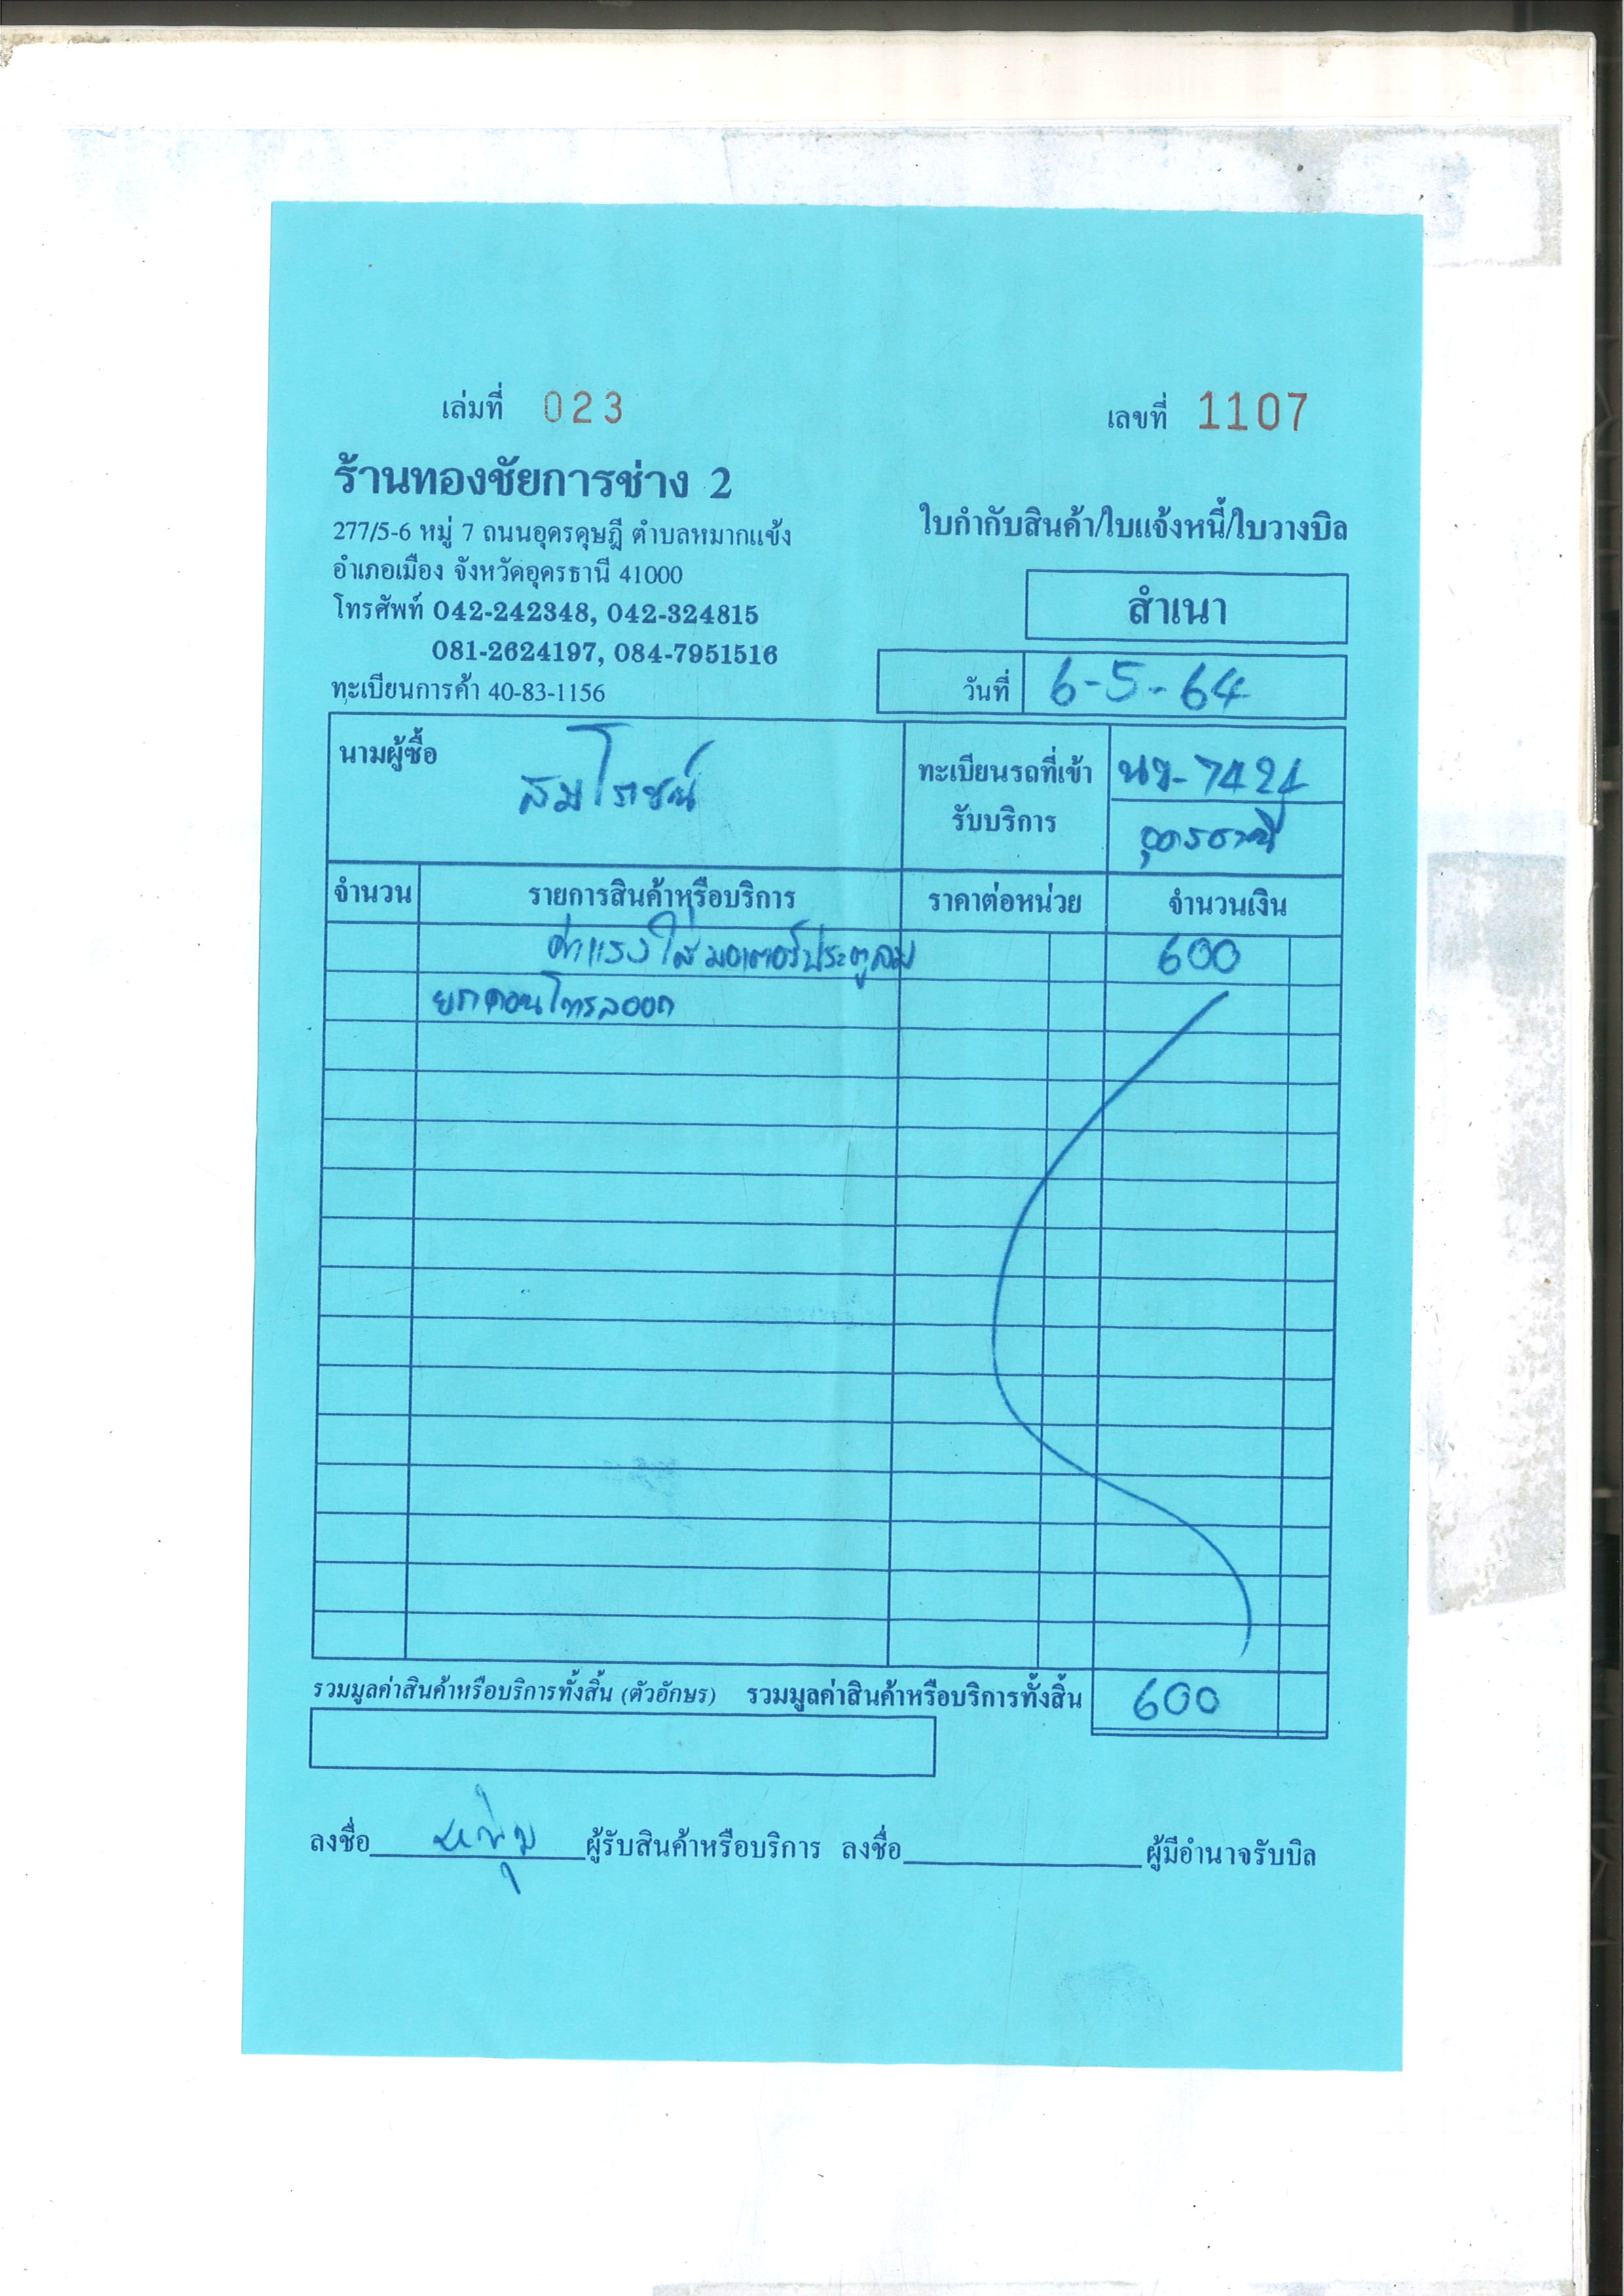 เล่มที่ 023
เลขที่ 1107
ร้านทองชัยการช่าง 2
277/5-6 หมู่ 7 ถนนอุดรดุษฎี ตำบลหมากแข้ง
อำเภอเมือง จังหวัดอุดรธานี 41000
โทรศัพท์ 042-242348, 042-324815
081-2624197, 084-7951516
ทะเบียนการค้า 40-83-1156
ใบกำกับสินค้า/ใบแจ้งหนี้/ใบวางบิล
สำเนา
วันที่ 6-5-64
นามผู้ซื้อ สมโรชน์
ทะเบียนรถที่เข้า
รับบริการ
7424
อุดรธานี
จำนวน รายการสินค้าหรือบริการ ราคาต่อหน่วย จำนวนเงิน
ค่าแรงใส่มอเตอร์ประตูลม 600
ยกคอนโทรลออก
รวมมูลค่าสินค้าหรือบริการทั้งสิ้น (ตัวอักษร) รวมมูลค่าสินค้าหรือบริการทั้งสิ้น 600
ลงชื่อ ผู้รับสินค้าหรือบริการ ลงชื่อ ผู้มีอำนาจรับบิล